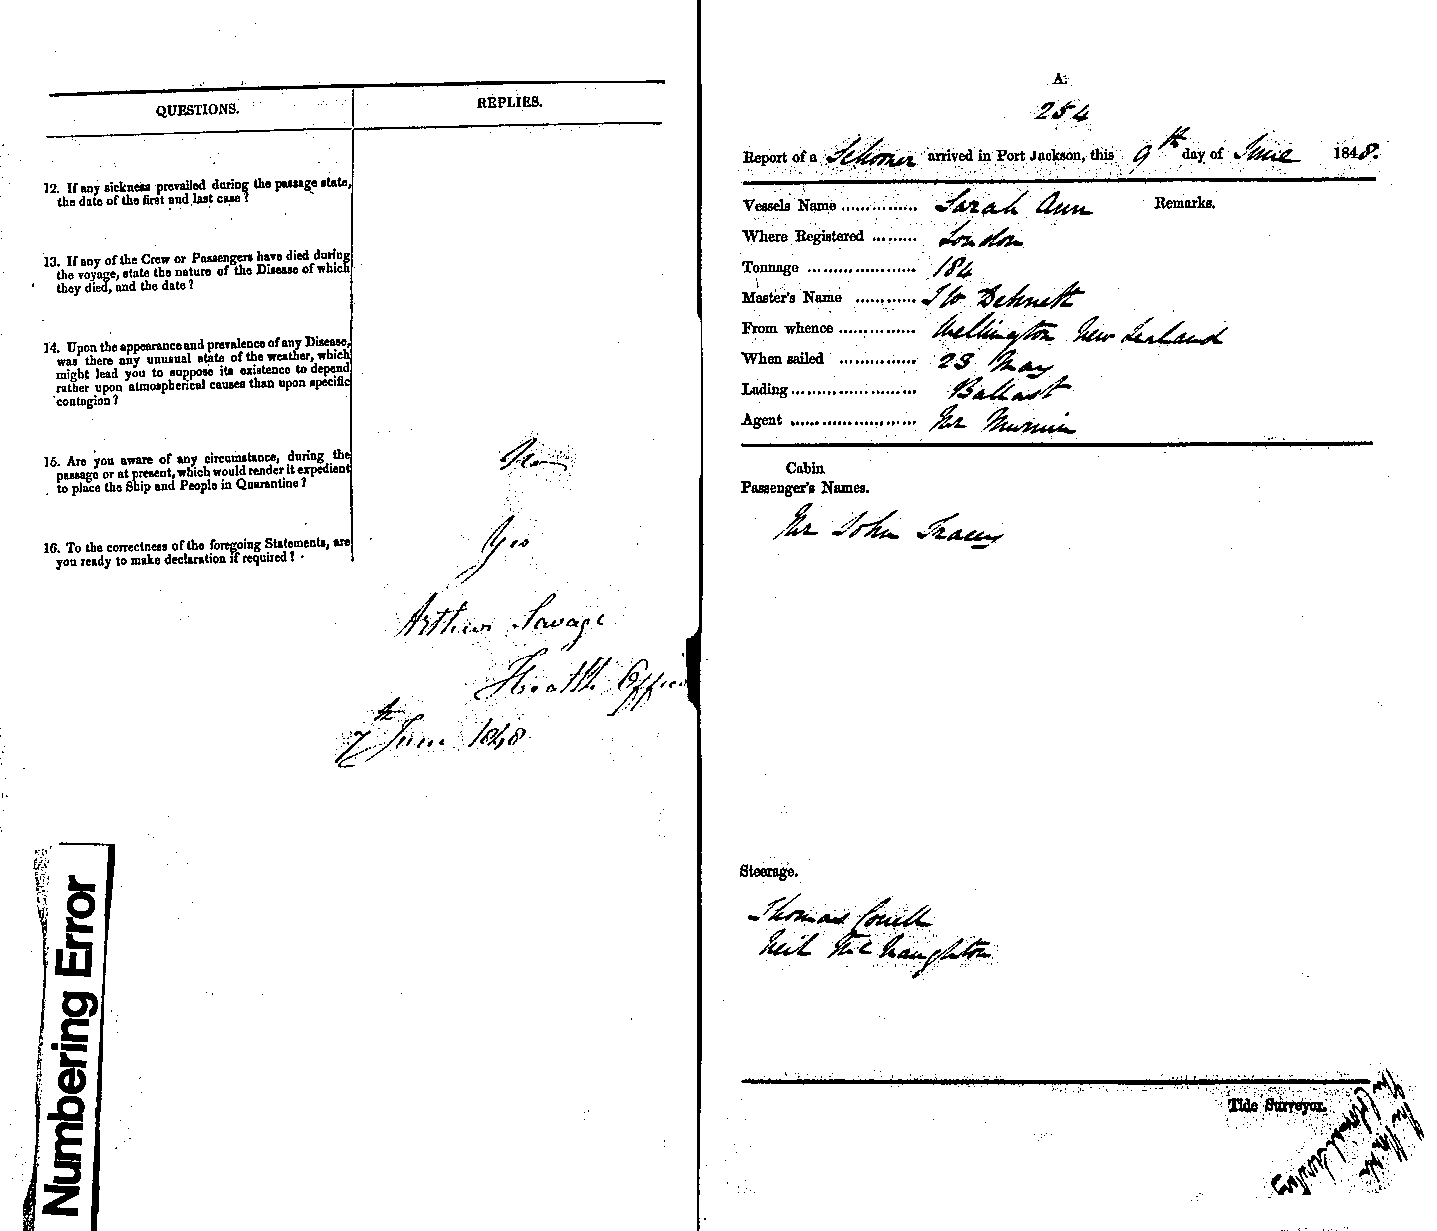 QUESTIONS.
REPLIES.
12. If any sickness prevailed during the passage state,
the date of the first and last case?
13. If any of the Crew or Passengers have died during
the voyage, state the nature of the Disease of which
they died, and the date?
14. Upon the appearance and prevalence of any Disease,
was there any unusual state of the weather, which
might lead you to suppose its existence to depend
rather upon atmospherical causes than upon specific
contagion?
15. Are you aware of any circumstance, during the
passage or at present, which would render it expedient
to place the Ship and People in Quarantine?
No
16. To the correctness of the foregoing Statements, are
you ready to make declaration if required?
Yes
Arthur Savage
Health Officer
7th June 1848
Numbering Error
A.
254
Report of a Schooner arrived in Port Jackson, this 9th day of June 1848.
Vessels Name .............. Sarah Ann
Remarks.
Where Registered ......... London
Tonnage ..................... 184
Master's Name ............
From whence ............... Wellington New Zealand
When sailed ............... 23 May
Lading ........................ Ballast
Agent ........................ Mr
Cabin
Passenger's Names.
Mr John Tracey
Steerage.
Thomas
Neil McNaughton
Tide Surveyor.